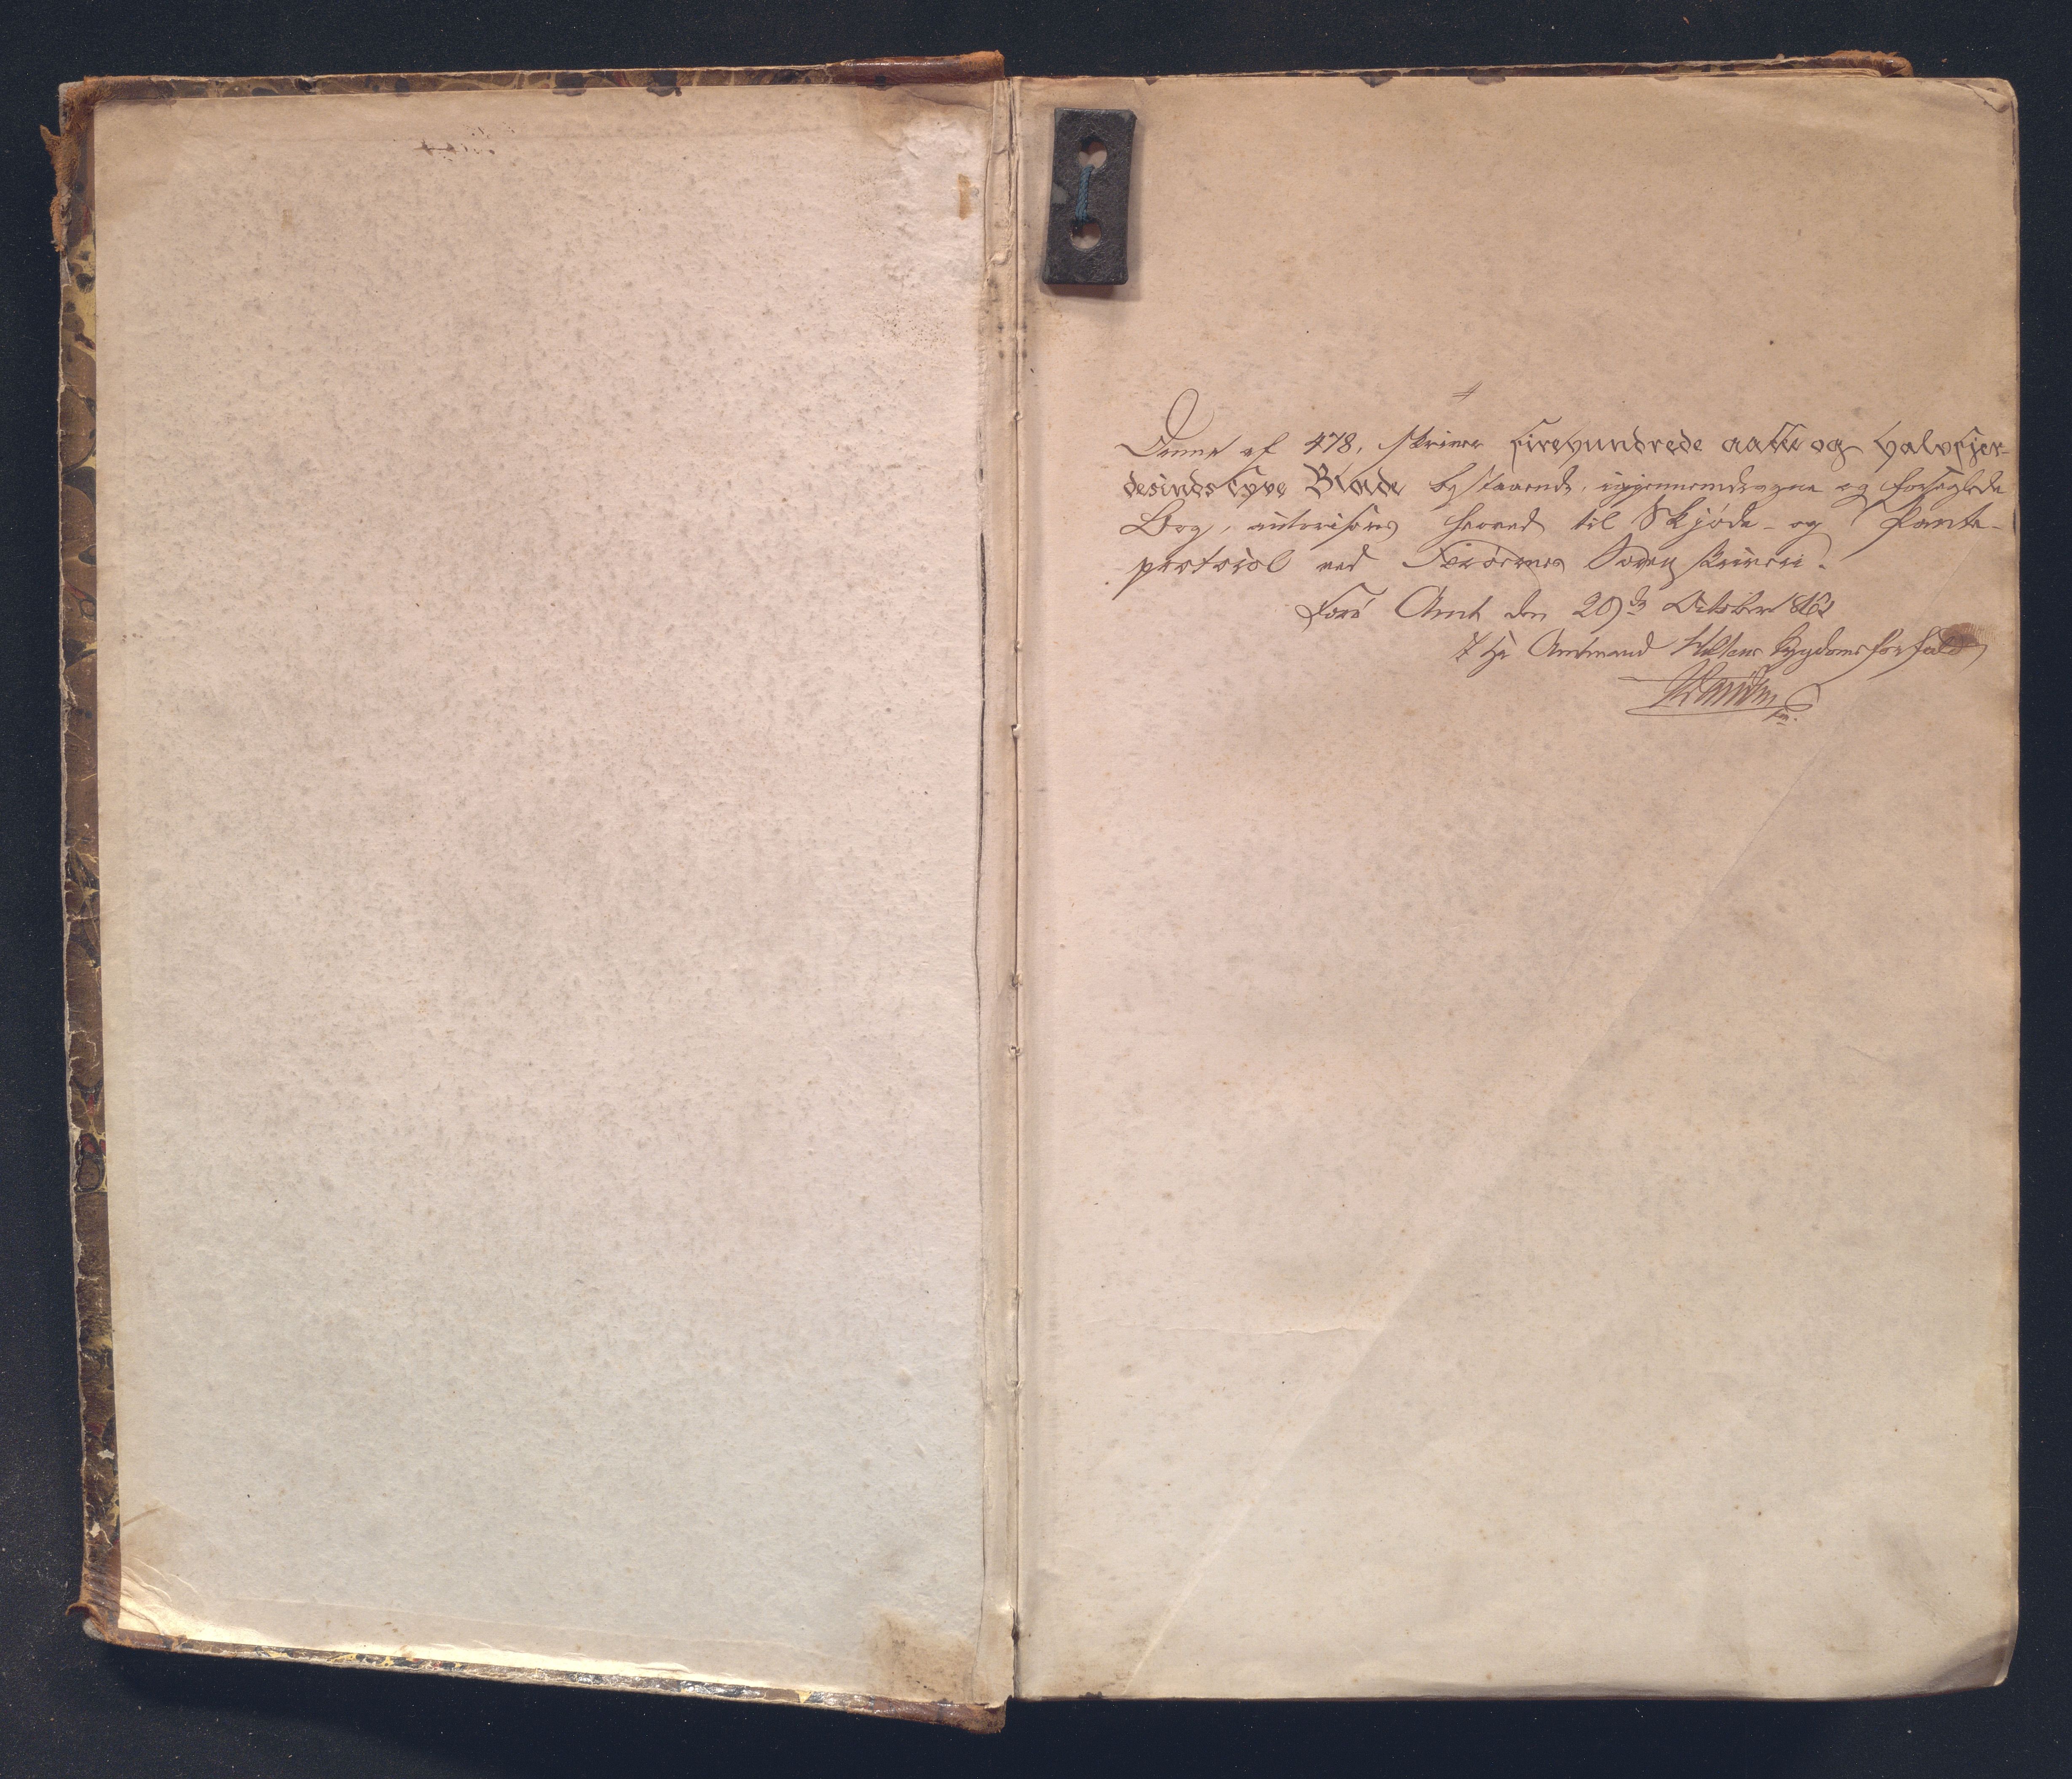 Denne af 478, skriver Firehundrede aatte og halvfjer-
desindstyve Blade bestaaende, igjennemdragne og forseglede
Bog, autoriseres herved til Skjøde- og Pante-
protocol ved Færøernes Sorenskriveri.
Færø Amt den 20de October 186
Amtmand Sygdomsforfald